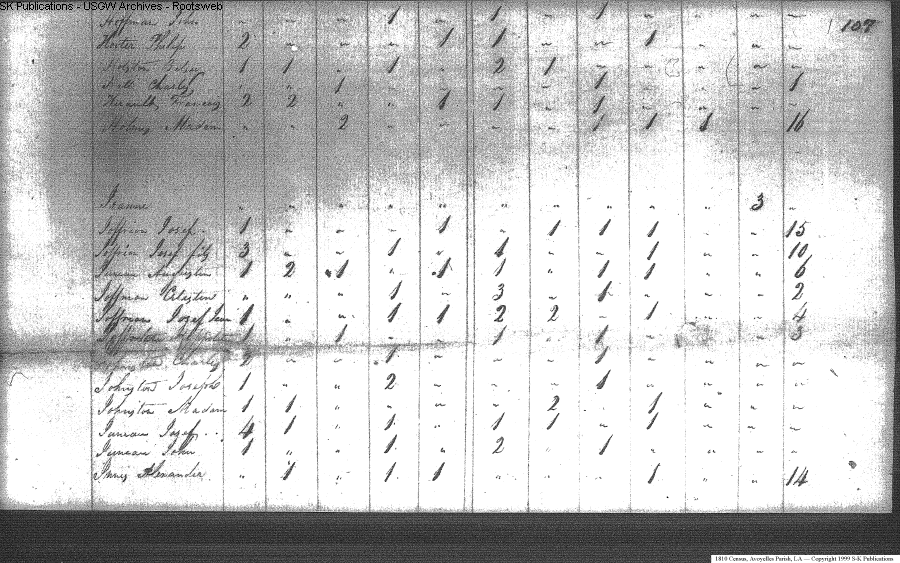 SK Publications - USGW Archives - Rootsweb
107
Hoffman John " " " 1 " 1 " 1 " " " "
Hooter Philip 2 " " " 1 1 " " 1 " " "
1 1 " 1 " 2 1 " " " " "
Charles " " 1 " " " " 1 " " " 1
Francois 2 2 " " 1 1 " 1 " " " "
Madam " " 2 " " " " 1 1 1 " 16
Jeanne " " " " " " " " " " 3 "
Joffrion Josef 1 " " " 1 " 1 1 1 " " 15
Joffrion Josef fils 3 " " 1 " 1 " " 1 " " 10
Juneau Augustin 1 2 1 " 1 1 " 1 1 " " 6
Joffrion Celestin " " " 1 " 3 " 1 " " " 2
Joffrion Josef 1 " " 1 1 2 2 " 1 " " 4
1 " 1 " " 1 " 1 " " " 3
Johnston Charles 2 " " 1 " " " 1 " " " "
Johnston Joseph 1 " " 2 " " " 1 " " " "
Johnston Madam 1 1 " " " " 2 " 1 " " "
Juneau Josef 4 1 " 1 " 1 1 " 1 " " "
Juneau John 1 " " 1 " 2 " 1 " " " "
Alexander " 1 " 1 1 " " " 1 " " 14
1810 Census, Avoyelles Parish, LA — Copyright 1999 S-K Publications